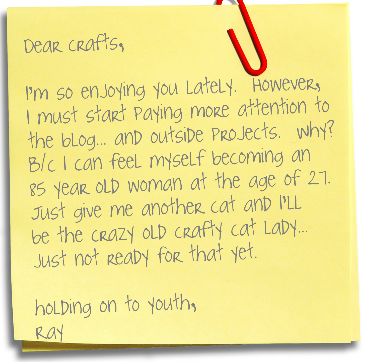 Dear Crafts,
I'm so enjoying you lately. However,
I must start paying more attention to
the blog... and outside projects. Why?
B/c I can feel myself becoming an
85 year old woman at the age of 27.
Just give me another cat and I'll
be the crazy old crafty cat lady...
Just not ready for that yet.
holding on to youth,
Ray